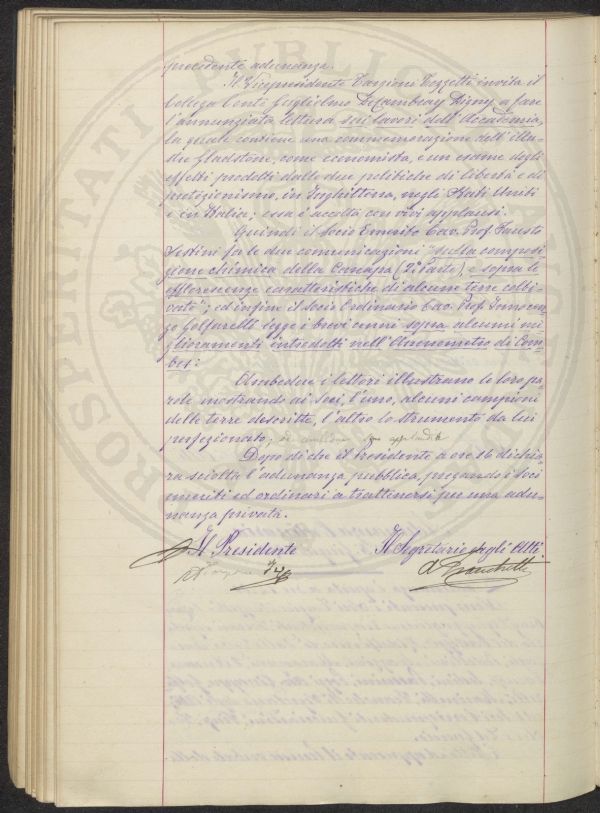 precedente adunanza.
Il Vicepresidente Targioni Tozzetti invita il
Collega Conte Guglielmo DeCambray Digny a fare
l'annunziata lettura sui lavori dell'Accademia,
la quale contiene una commemorazione dell'illu-
stre Gladstone, come economista, e un esame degli
effetti prodotti dalle due politiche di libertà e di
protezionismo, in Inghilterra, negli Stati Uniti
e in Italia; essa è accolta con vivi applausi.
Quindi il Socio Emerito Cav. Prof. Fausto
Sestini fa le due comunicazioni "sulla composi-
zione chimica della Canapa (2a Parte), e sopra le
efflorescenze caratteristiche di alcune terre colti-
vate"; ed infine il Socio Ordinario Cav. Prof. Innocen-
zo Golfarelli legge i brevi cenni sopra alcuni mi-
glioramenti introdotti nell'Anemometro di Com-
bes:
Ambedue i lettori illustrano le loro pa-
role mostrando ai Soci, l'uno, alcuni campioni
delle terre descritte, l'altro lo strumento da lui
perfezionato; ed ambedue sono applauditi
Dopo di che il Presidente a ore 16 dichia-
ra sciolta l'adunanza pubblica, pregando i Soci
emeriti ed ordinari a trattenersi per una adu-
nanza privata.
Il Presidente Il Segretario degli Atti